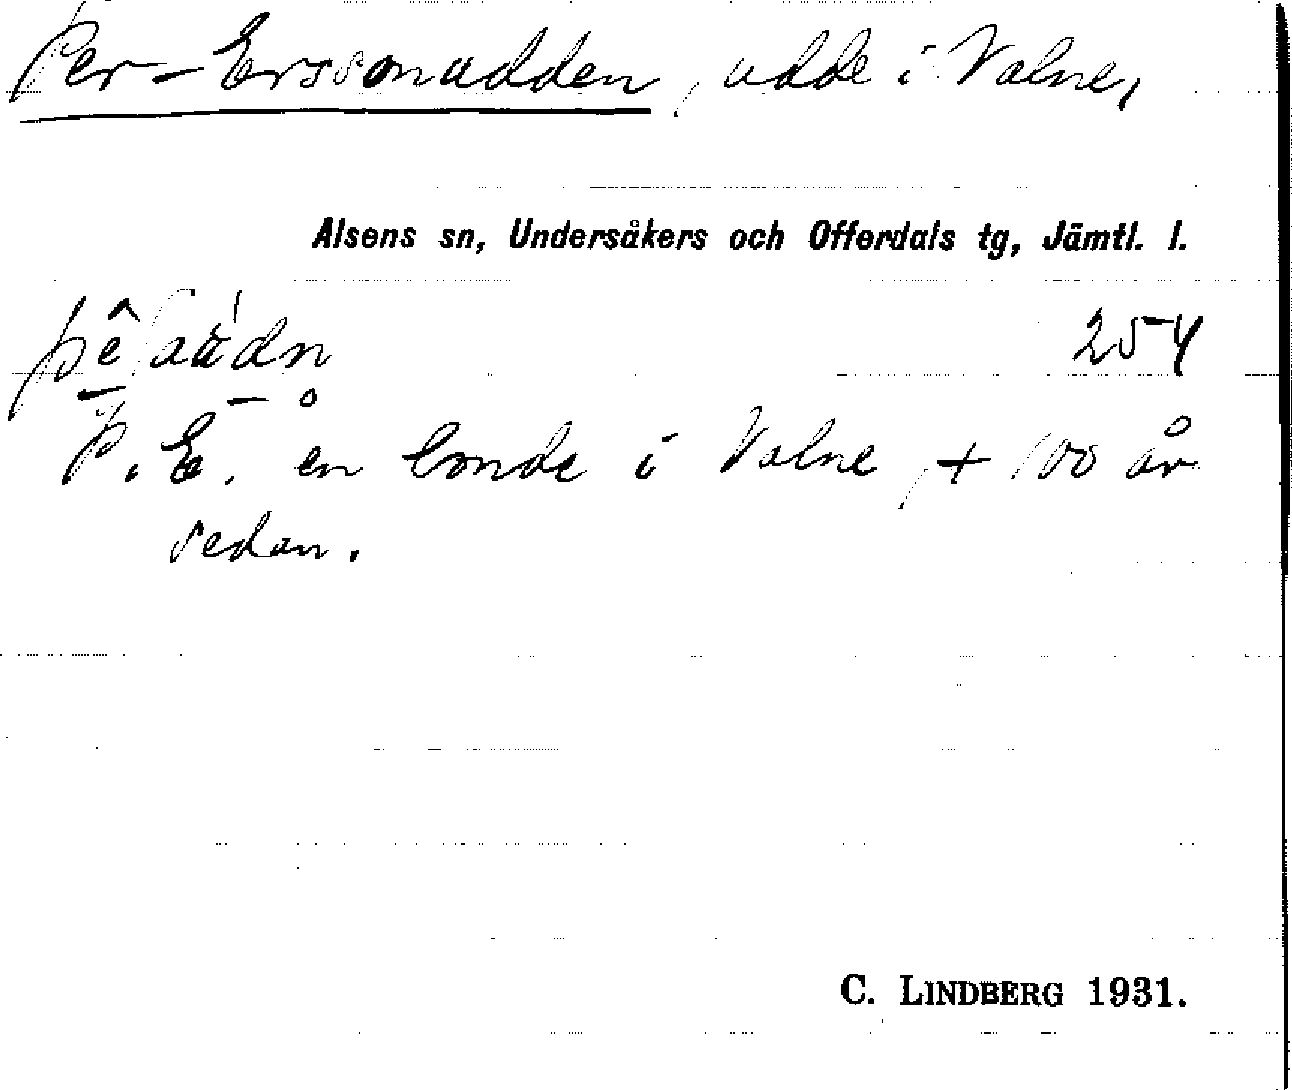 Per-Erssonudden, udde i Valne,
Alsens sn, Undersåkers och Offerdals tg, Jämtl. l.
254
P. E. en bonde i Valne, + 100 år
sedan.
C. LINDBERG 1931.